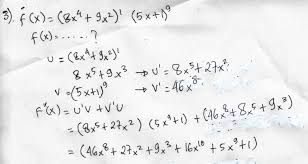 3). f(x) = (8x⁴ + 9x²)' (5x+1)⁹
f(x) = ..... ?
U = (8x⁴ + 9x²)'
8x⁵ + 9x³ → U' = 8x⁵ + 27x²
V = (5x+1)⁹ → V' = 46x⁸
f'(x) = U'V + V'U
= (8x⁵ + 27x²) (5x⁹+1) + (46x⁸ + 8x⁵ + 9x³)
= (46x⁸ + 27x² + 9x³ + 16x¹⁰ + 5x⁹ + 1)